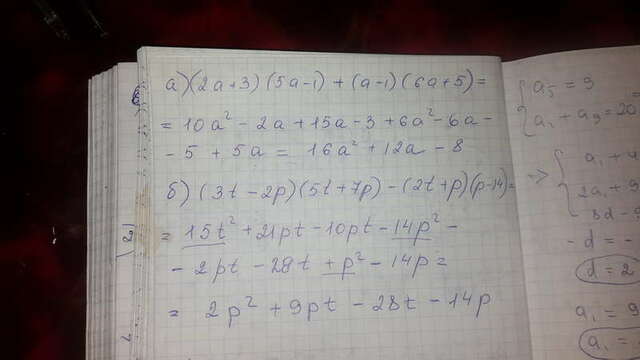 а) (2a+3)(5a-1)+(a-1)(6a+5)=
= 10a² - 2a + 15a - 3 + 6a² - 6a -
- 5 + 5a = 16a² + 12a - 8
б) (3t - 2p)(5t + 7p) - (2t + p)(p-14)=
= 15t² + 21pt - 10pt - 14p² -
- 2pt - 28t + p² - 14p =
= 2p² + 9pt - 28t - 14p
a₅ = 9
a₁ + a₉ = 20
=>
a₁ + 4
2a₁ + 9
- d = -
d = 2
a₁ = 9
a₁ =